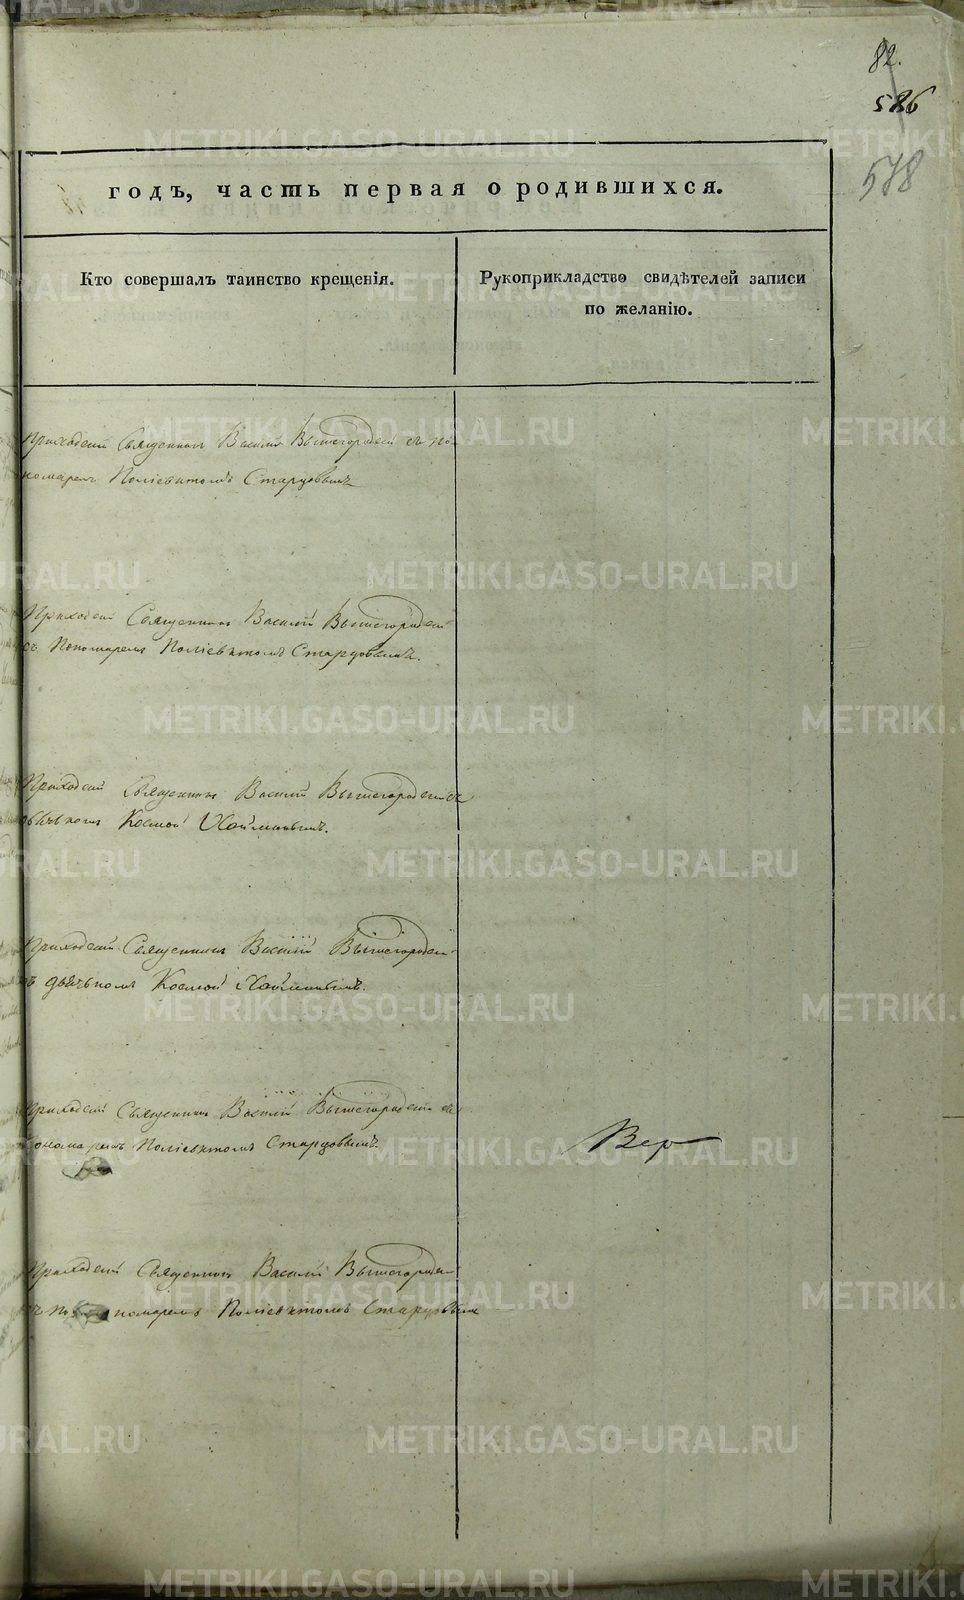 82.
586
578
годъ, часть первая о родившихся.
Кто совершалъ таинство крещенія.
Рукоприкладство свидѣтелей записи
по желанію.
Приходскій Священникъ Василій Вышегородскій съ по-
номаремъ Поліевктомъ Старцовымъ
Приходскій Священникъ Василій Вышегородскій
съ Пономаремъ Поліевктомъ Старцовымъ.
Приходскій Священникъ Василій Вышегородскій съ
дьячькомъ Космой
Приходскій Священникъ Василій Вышегородскій
съ дьячькомъ Космой
Приходскій Священникъ Василій Вышегородскій съ
пономаремъ Поліевктомъ Старцовымъ.
Вер
Приходскій Священникъ Василій Вышегородскій
съ по номаремъ Поліевктомъ Старцовымъ
METRIKI.GASO-URAL.RU